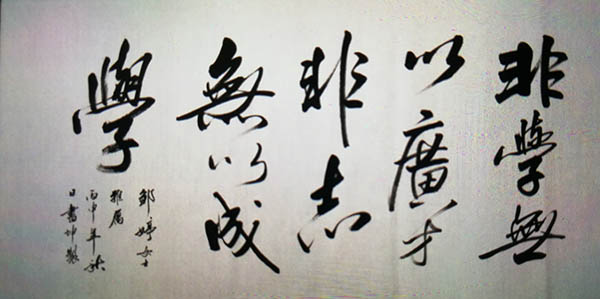 非學無
以廣才
非志
無以成
學
邹婷女士
雅属
丙申年秋
日書坤